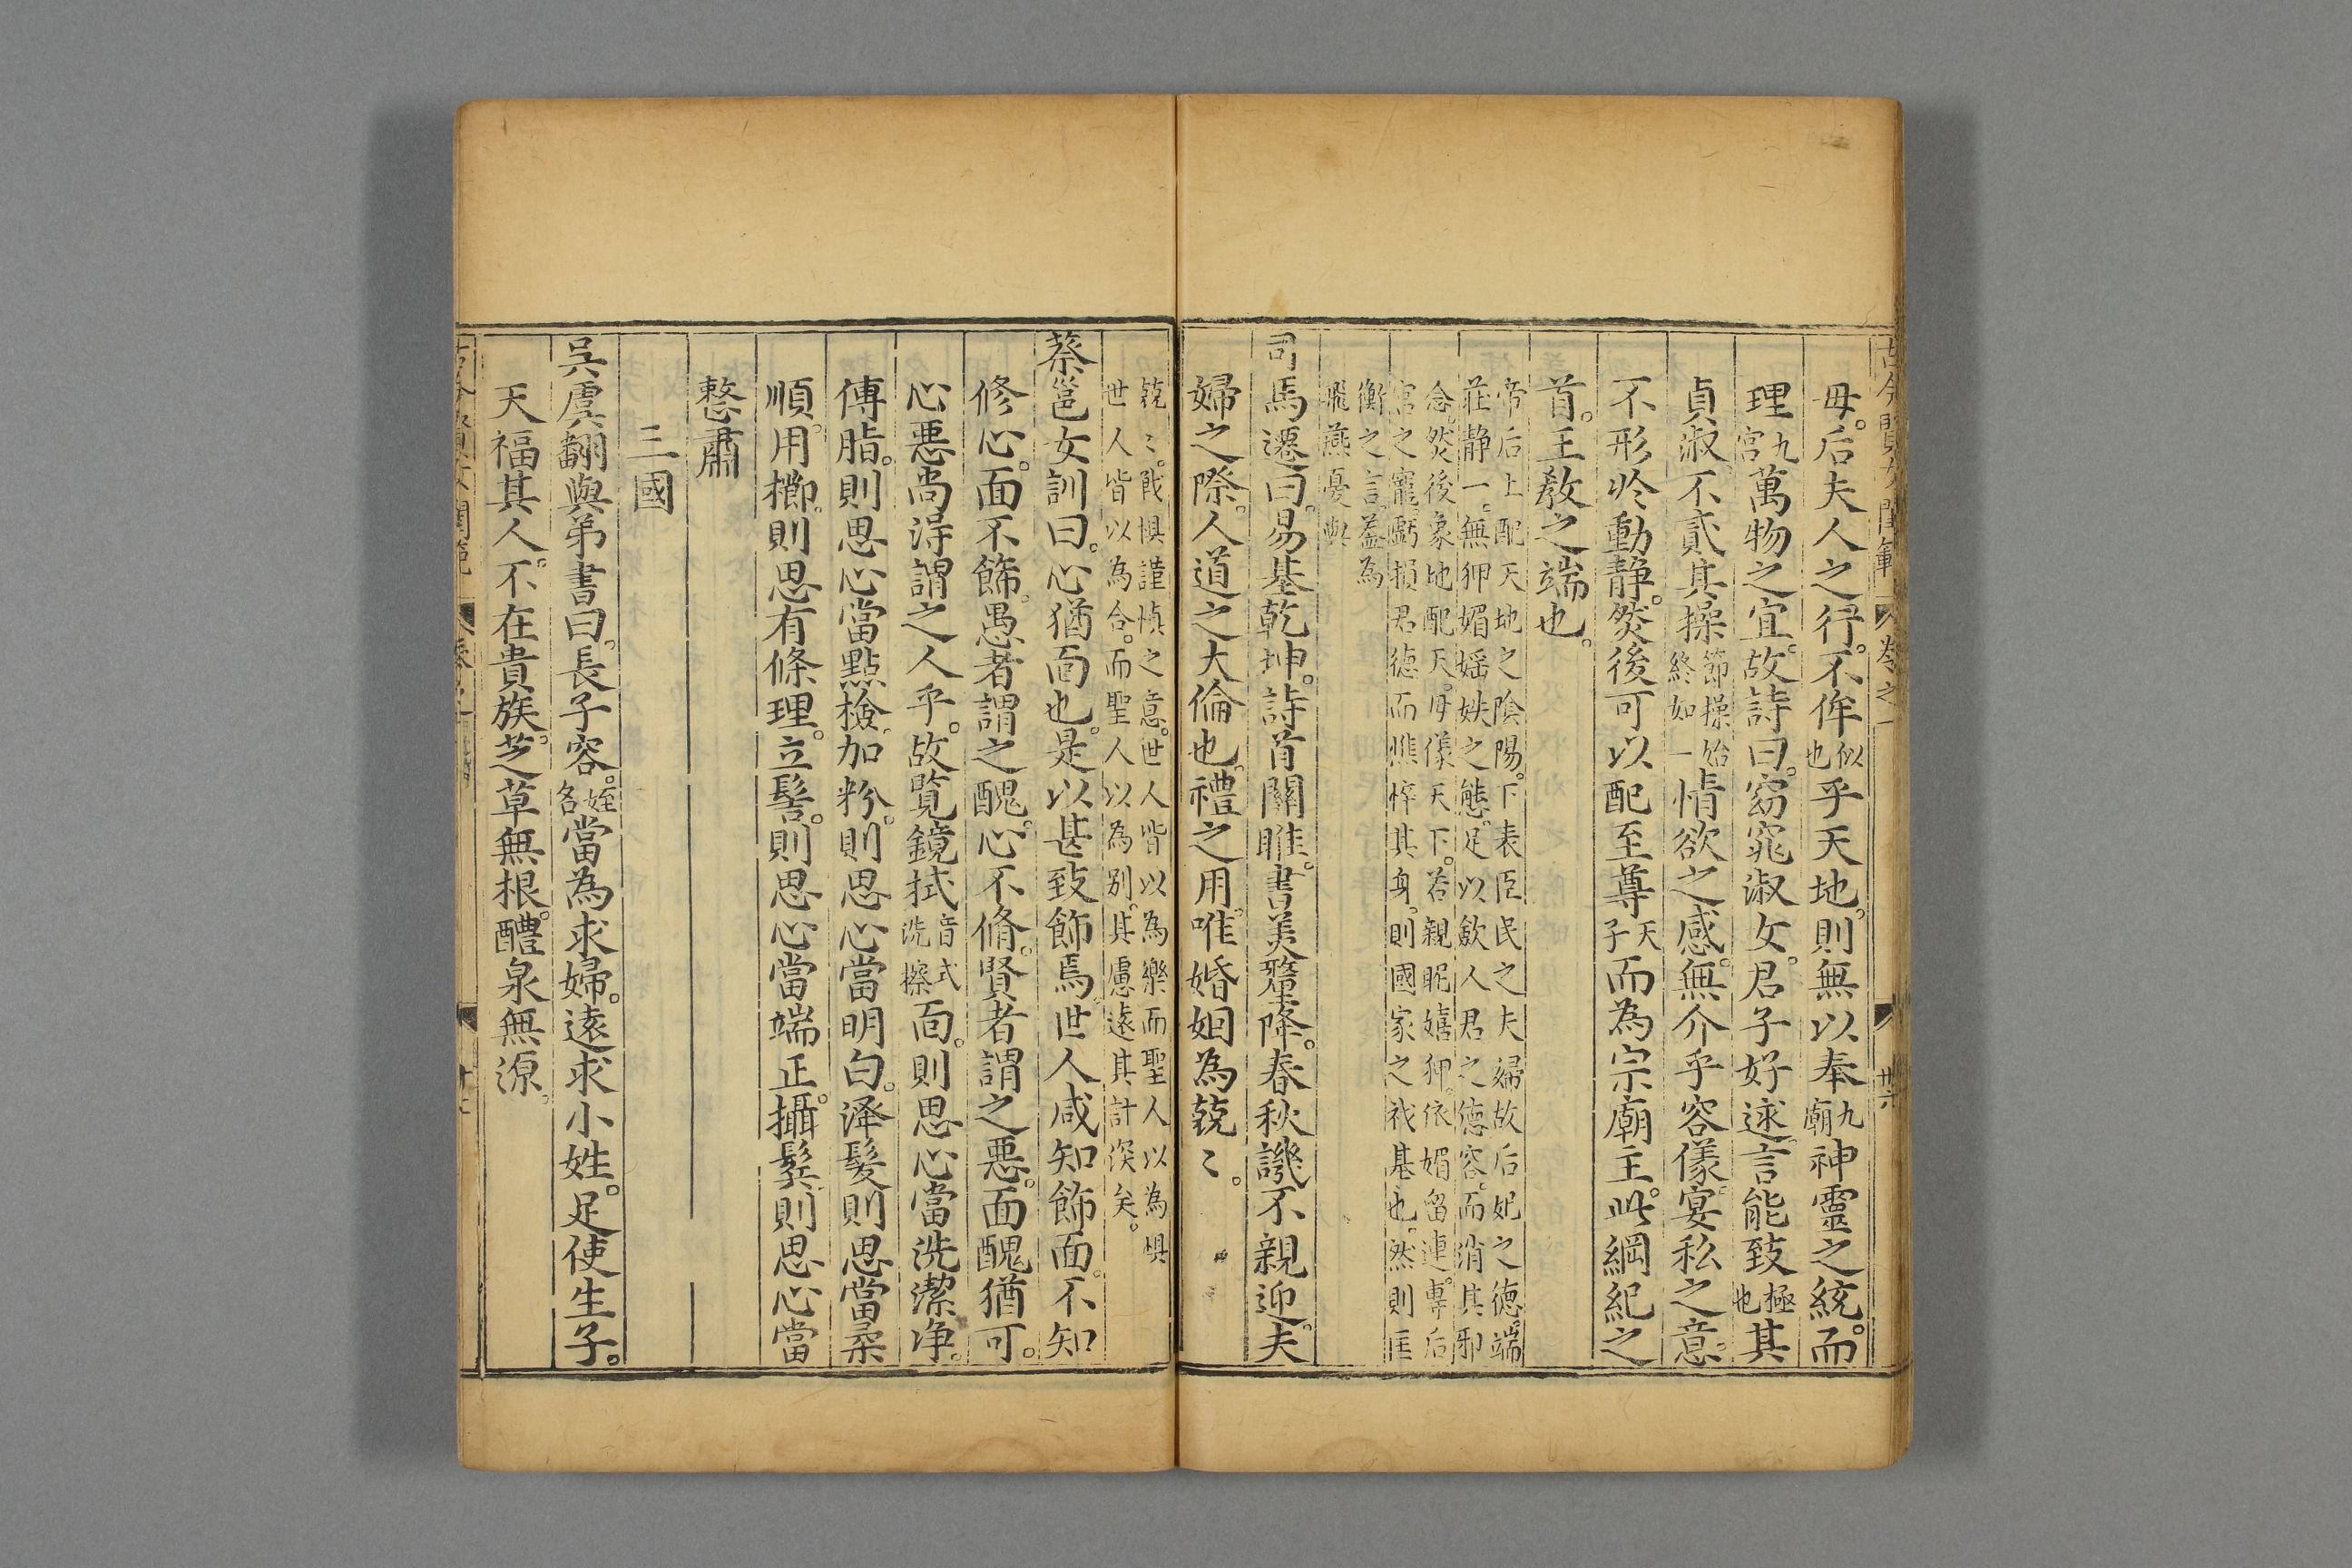 古今賢女閨範 卷之一 廿六
母。后夫人之行。不侔似也乎天地。則無以奉九廟神靈之統。而
理九宮萬物之宜。故詩曰。窈窕淑女。君子好逑。言能致極也其
貞淑。不貳其操節操始終如一情欲之感。無介乎容儀。宴私之意。
不形於動静。然後可以配至尊天子而為宗廟主。此綱紀之
首。王教之端也。
帝后上配天地之陰陽。下表臣民之夫婦故后妃之德端
莊静一。無狎媚婬妷之態。足以歛人君之德容。而消其邪
念。然後象地配天。母儀天下。若親昵嬉狎。依媚留連。專后
宮之寵。虧損君德。而憔悴其身。則國家之戕基也。然則匡
衡之言。盖為
飛燕憂與
司馬遷曰。易基乾坤。詩首關雎。書美釐降。春秋譏不親迎。夫
婦之際。人道之大倫也。禮之用。唯婚姻為兢〻。
兢〻。戝惧謹慎之意。世人皆以為樂而聖人以為惧
世人皆以為合。而聖人以為别。其慮遠其計深矣。
蔡邕女訓曰。心猶面也。是以甚致飾焉。世人咸知飾面。不知
修心。面不飾。愚者謂之醜。心不脩。賢者謂之惡。面醜猶可。
心惡尚得謂之人乎。故覧鏡拭音式洗擦面。則思心當洗潔净。
傅脂。則思心當點檢。加粉。則思心當明白。澤髮則思當柔
順。用擳。則思有條理。立髻。則思心當端正。攝鬓。則思心當
整肅
三國
吳虞翻與弟書曰。長子容。姪名當為求婦。遠求小姓。足使生子。
天福其人。不在貴族。芝草無根。醴泉無源。